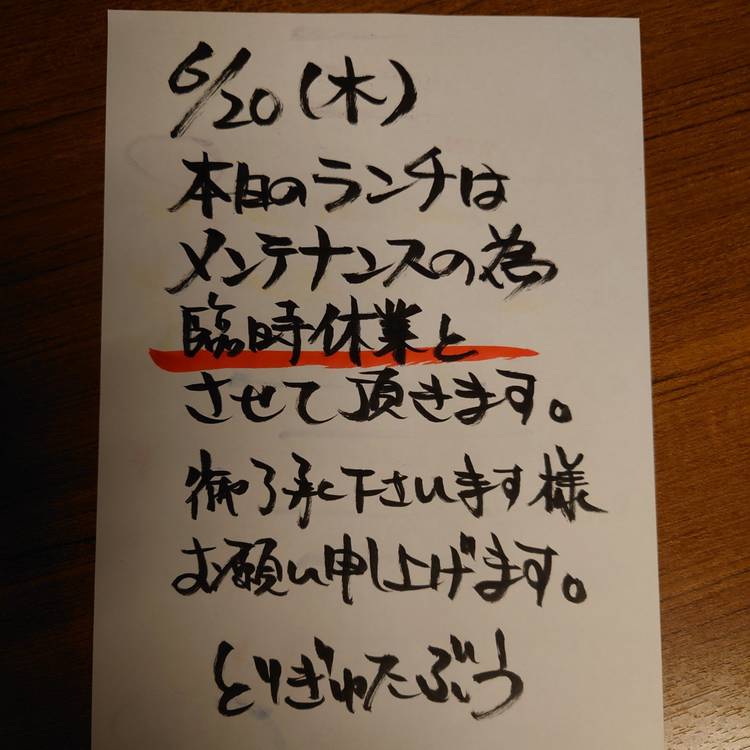 6/20(木)
本日のランチは
メンテナンスの為
臨時休業と
させて頂きます。
御了承下さいます様
お願い申し上げます。
とりぎゅたぶう